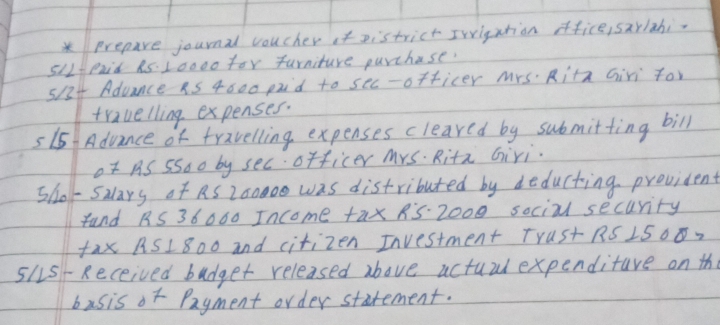 * Prepare journal voucher of District Irrigation office, sarlahi.
5/2 - Paid Rs. 10000 for furniture purchase.
5/3 - Advance RS 4000 paid to sec-officer Mrs. Rita Giri for
travelling expenses.
5/5 - Advance of travelling expenses cleared by submitting bill
of RS 5500 by sec. officer Mrs. Rita Giri.
5/10 - Salary of RS 200000 was distributed by deducting provident
fund RS 36000 Income tax RS. 2000 social security
tax RS 1800 and citizen Investment Trust RS 1500.
5/15 - Received budget released above actual expenditure on the
basis of Payment order statement.